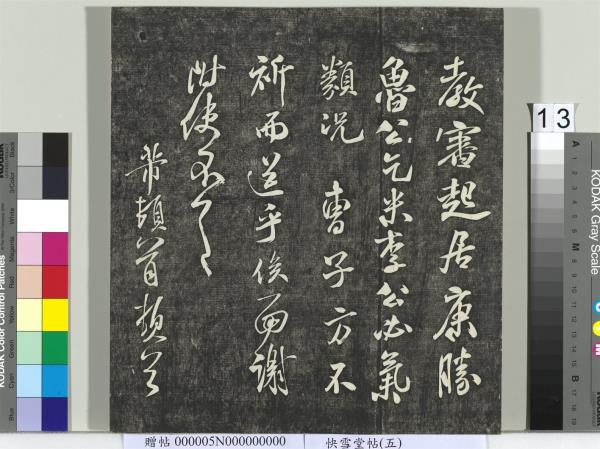 教審起居康勝
魯公乞米李公必氣
類況 曹子方不
祈而送乎俟面謝
附使不一一
芾頓首頓首
贈帖 000005N000000000 快雪堂帖(五)
13
KODAK Color Control Patches
Blue
Cyan
Green
Yellow
Red
Magenta
White
Black
KODAK Gray Scale
A 1 2 3 4 5 6 M 8 9 10 11 12 13 14 15 B 17 18 19
C
Y
M